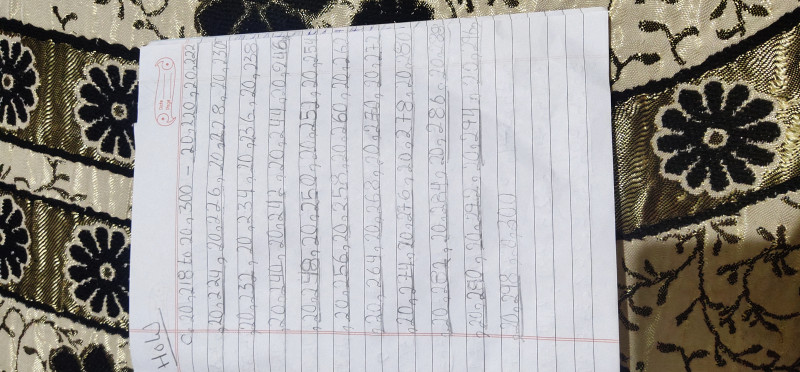 HOW
Date
Page
c. 20,218 to 20,300 - 20,220, 20,222
20,224, 20,226, 20,228, 20,230
20,232, 20,234, 20,236, 20,238
20,240, 20,242, 20,244, 20,246
20,248, 20,250, 20,252, 20,254
20,256, 20,258, 20,260, 20,262
20,264, 20,268, 20,270, 20,272
20,274, 20,276, 20,278, 20,280
20,282, 20,284, 20,286,
20,294,
20,298, 20,300